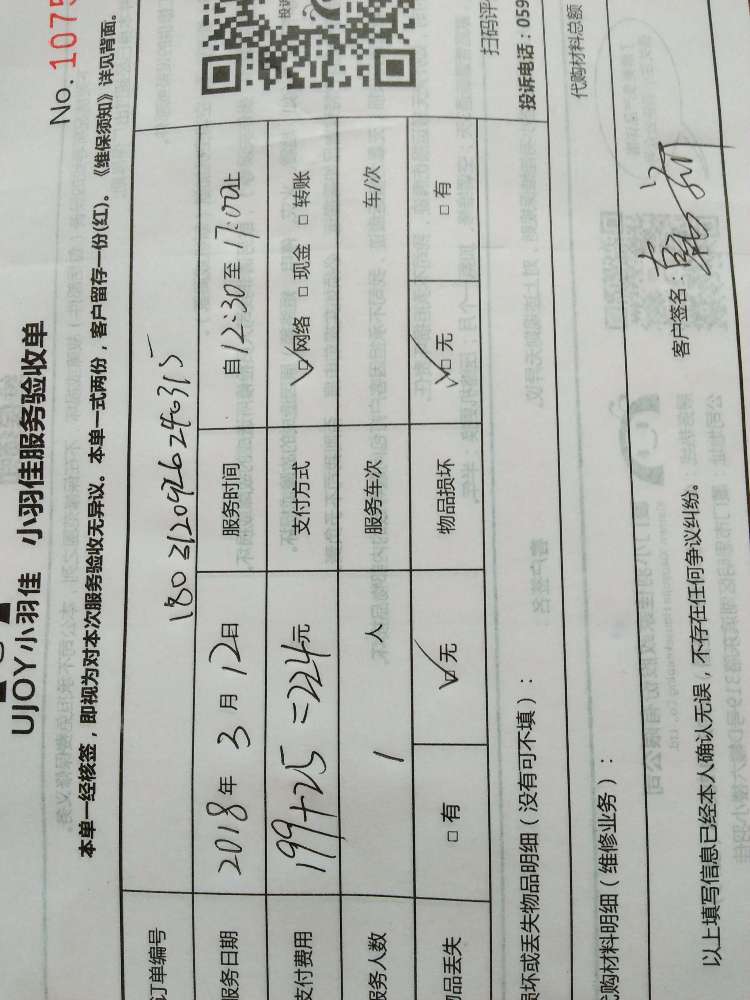 No. 1075
UJOY小羽佳 小羽佳服务验收单
本单一经核签，即视为对本次服务验收无异议。本单一式两份，客户留存一份(红)。《维保须知》详见背面。
订单编号 1803120926240315
服务日期 2018年3月12日 服务时间 自12:30至17:00止
支付费用 199+25=224元 支付方式 ☑网络 □现金 □转账
服务人数 1 人 服务车次 车/次
物品丢失 □有 ☑无 物品损坏 ☑无 □有
损坏或丢失物品明细（没有可不填）：
代购材料明细（维修业务）：
以上填写信息已经本人确认无误，不存在任何争议纠纷。
客户签名：
投诉
扫码评
投诉电话：059
代购材料总额